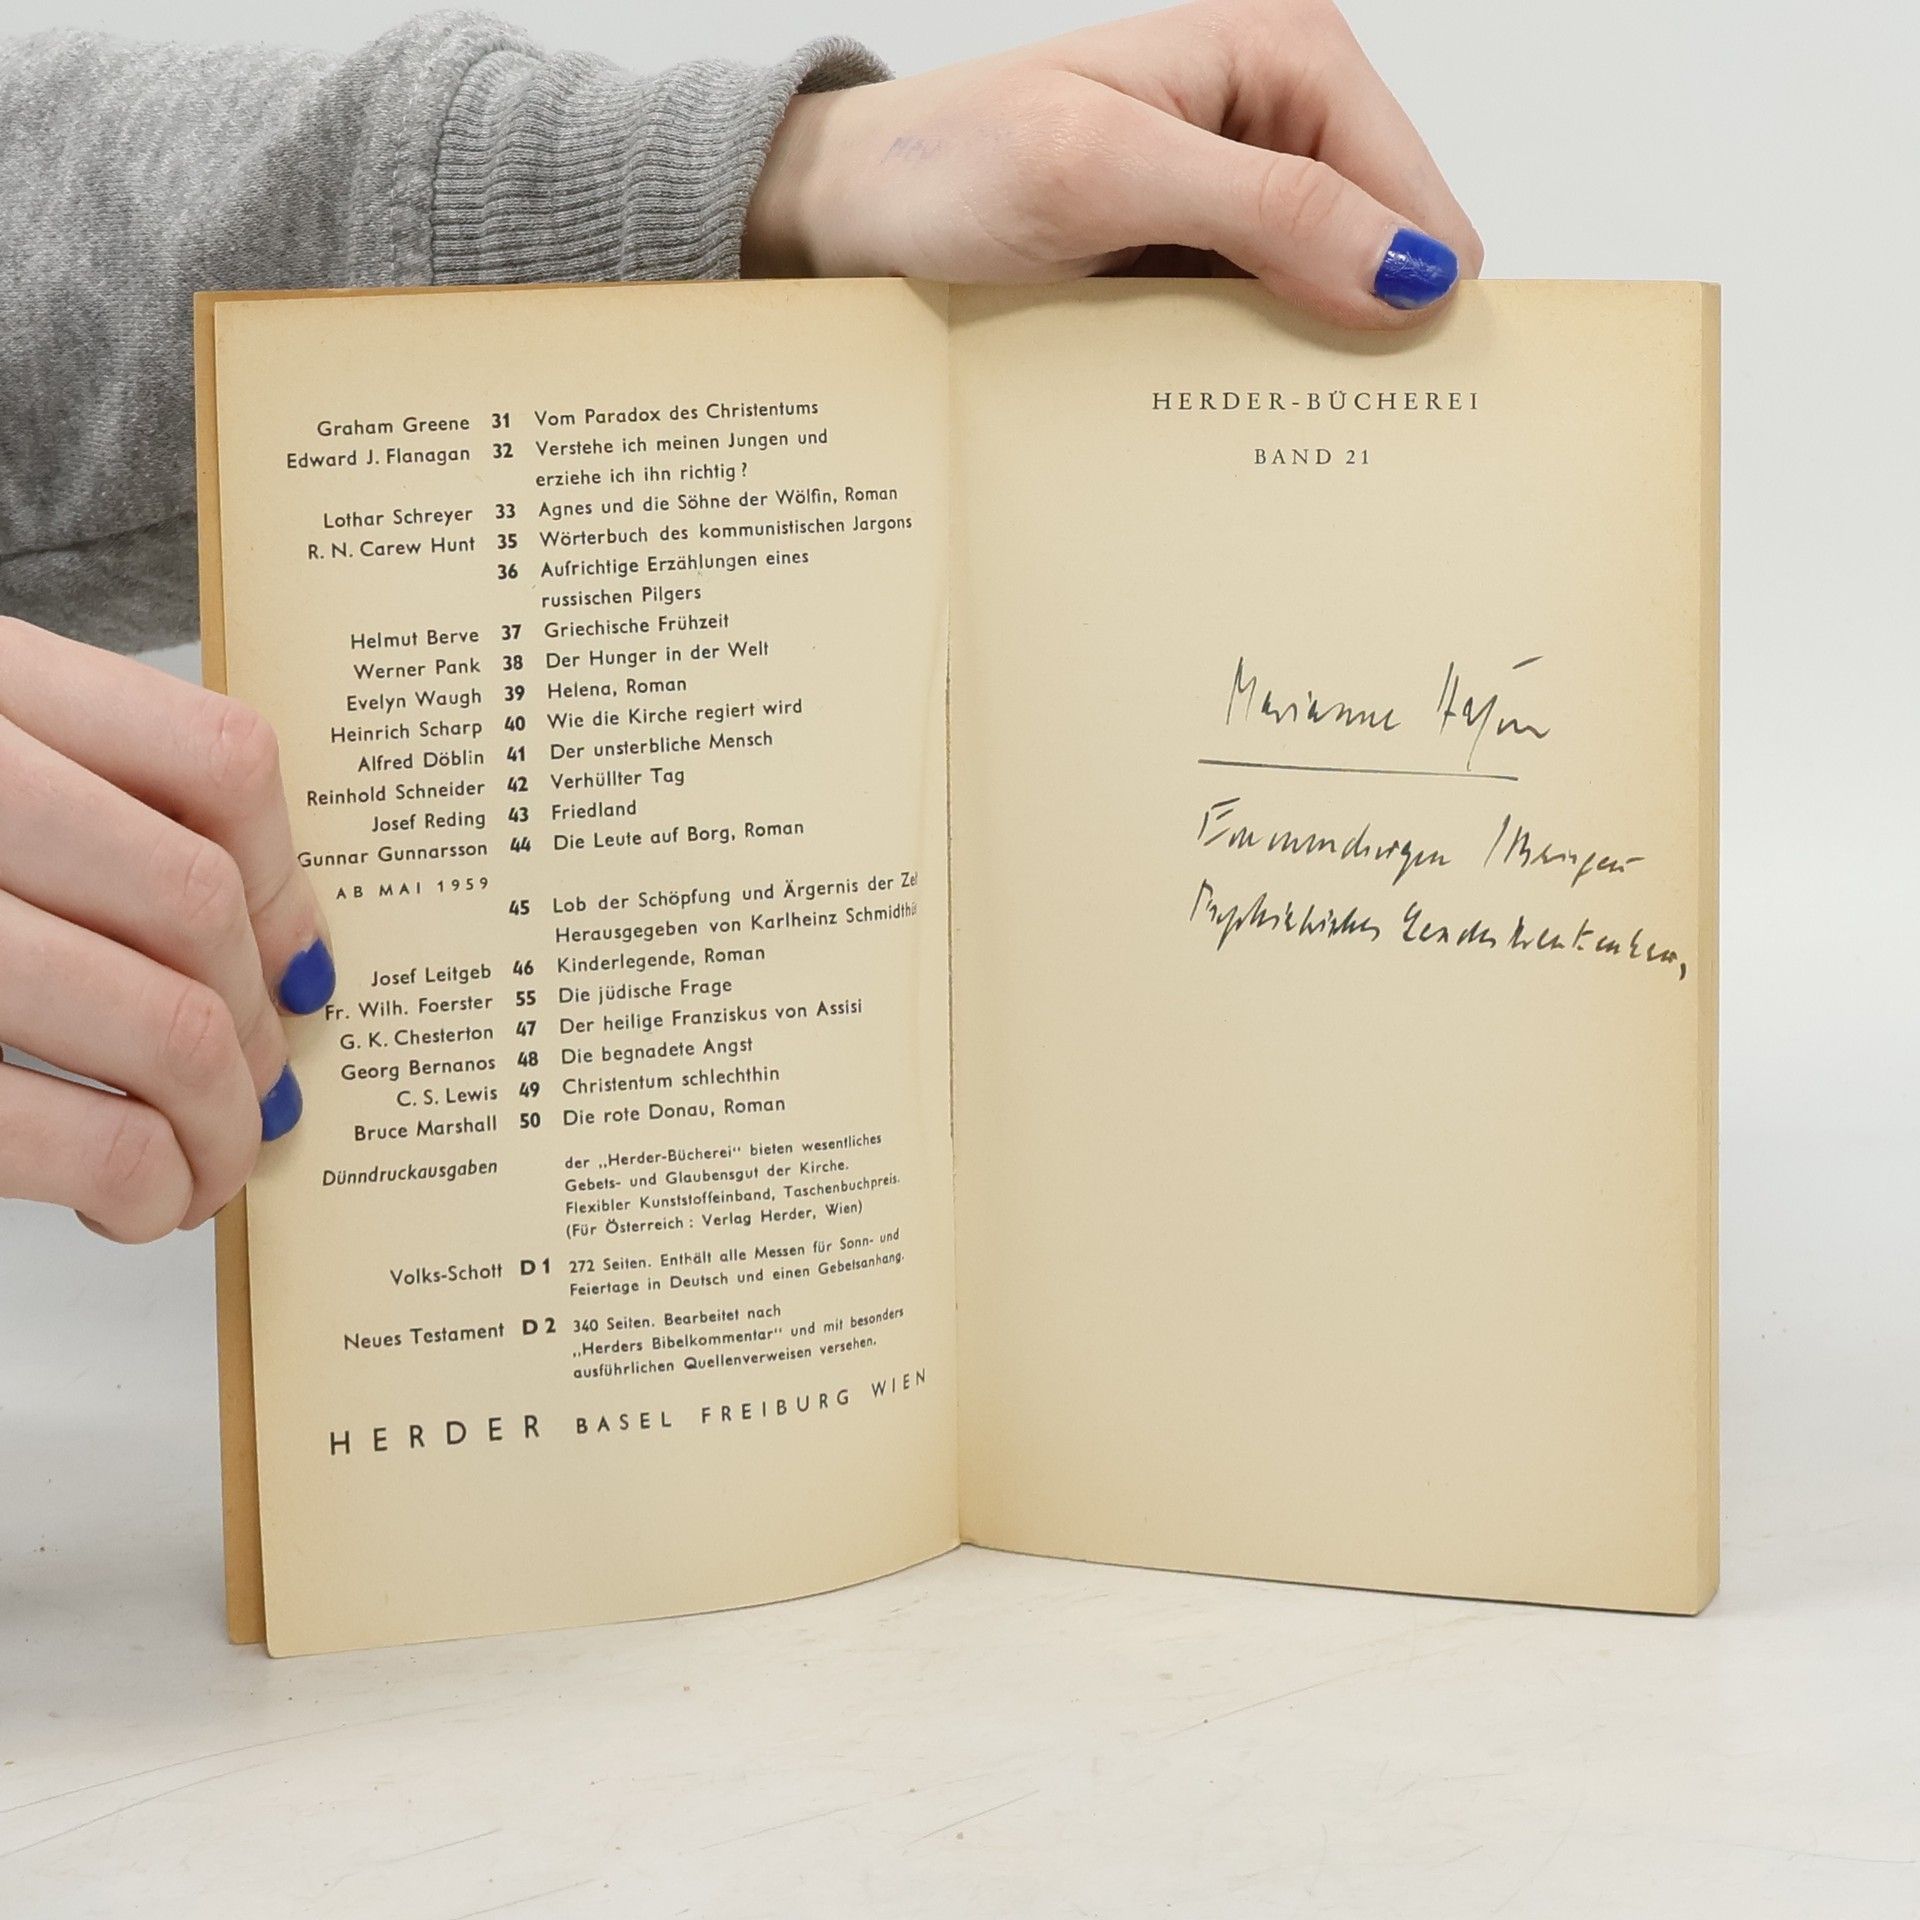 Graham Greene 31 Vom Paradox des Christentums
Edward J. Flanagan 32 Verstehe ich meinen Jungen und
erziehe ich ihn richtig?
Lothar Schreyer 33 Agnes und die Söhne der Wölfin, Roman
R. N. Carew Hunt 35 Wörterbuch des kommunistischen Jargons
36 Aufrichtige Erzählungen eines
russischen Pilgers
Helmut Berve 37 Griechische Frühzeit
Werner Pank 38 Der Hunger in der Welt
Evelyn Waugh 39 Helena, Roman
Heinrich Scharp 40 Wie die Kirche regiert wird
Alfred Döblin 41 Der unsterbliche Mensch
Reinhold Schneider 42 Verhüllter Tag
Josef Reding 43 Friedland
Gunnar Gunnarsson 44 Die Leute auf Borg, Roman
AB MAI 1959
45 Lob der Schöpfung und Ärgernis der
Herausgegeben von Karlheinz
Josef Leitgeb 46 Kinderlegende, Roman
Fr. Wilh. Foerster 55 Die jüdische Frage
G. K. Chesterton 47 Der heilige Franziskus von Assisi
Georg Bernanos 48 Die begnadete Angst
C. S. Lewis 49 Christentum schlechthin
Bruce Marshall 50 Die rote Donau, Roman
Dünndruckausgaben der „Herder-Bücherei“ bieten wesentliches
Gebets- und Glaubensgut der Kirche.
Flexibler Kunststoffeinband, Taschenbuchpreis.
(Für Österreich: Verlag Herder, Wien)
Volks-Schott D 1 272 Seiten. Enthält alle Messen für Sonn- und
Feiertage in Deutsch und einen Gebetsanhang.
Neues Testament D 2 340 Seiten. Bearbeitet nach
„Herders Bibelkommentar“ und mit besonders
ausführlichen Quellenverweisen versehen.
HERDER BASEL FREIBURG WIEN
HERDER-BÜCHEREI
BAND 21
Marianne